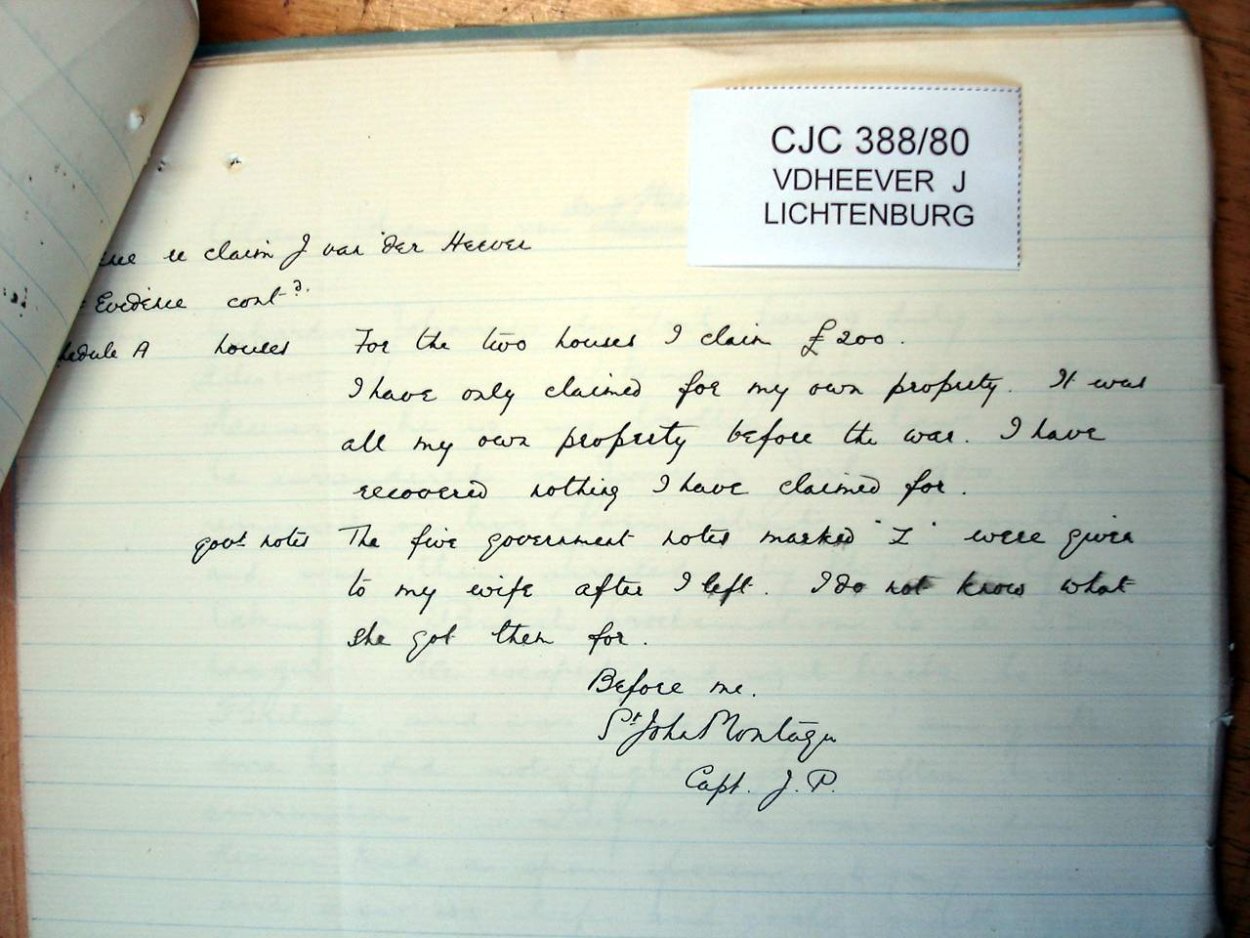 CJC 388/80
VDHEEVER J
LICHTENBURG
re claim J van der Heever
Evidence cont^d.
Schedule A houses For the two houses I claim £200.
I have only claimed for my own property. It was
all my own property before the war. I have
recovered nothing I have claimed for.
govt notes The five government notes marked "Z" were given
to my wife after I left. I do not know what
she got them for.
Before me.
St John Montagu
Capt. J.P.